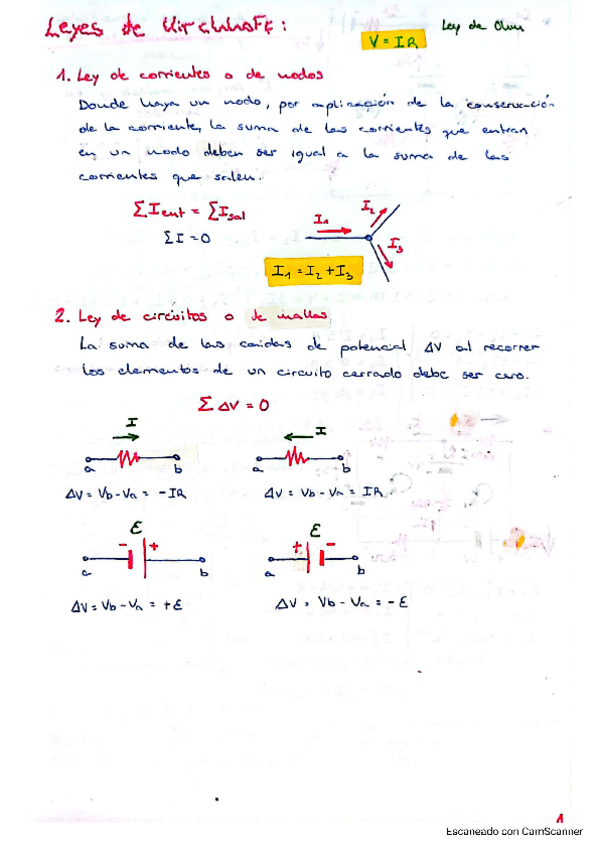 Leyes de Kirchhoff:
Ley de Ohm
V = IR
1. Ley de corrientes o de nodos
Donde haya un nodo, por aplicación de la conservación
de la corriente, la suma de las corrientes que entran
en un nodo deben ser igual a la suma de las
corrientes que salen.
ΣIent = ΣIsal
ΣI = 0
I1
I2
I3
I1 = I2 + I3
2. Ley de circuitos o de mallas
La suma de las caídas de potencial ΔV al recorrer
los elementos de un circuito cerrado debe ser cero.
Σ ΔV = 0
I
I
a b
a b
ΔV = Vb - Va = -IR
ΔV = Vb - Va = IR
ε
ε
- +
+ -
a b
a b
ΔV = Vb - Va = +ε
ΔV = Vb - Va = -ε
1
Escaneado con CamScanner